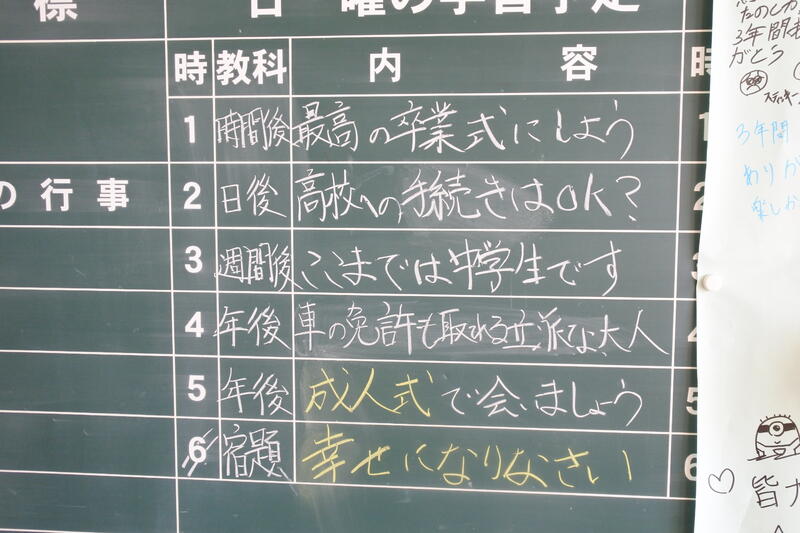 標
日 曜の学習予定
時 教科 内 容
1 時間後 最高の卒業式にしよう
の 行 事
2 日後 高校への手続きはOK?
3 週間後 ここまでは中学生です
4 年後 車の免許も取れる立派な大人
5 年後 成人式で会いましょう
6 宿題 幸せになりなさい
時
1
2
3
4
5
6
たのしか
3年間
がとう
3年間
ありが
楽しか
皆